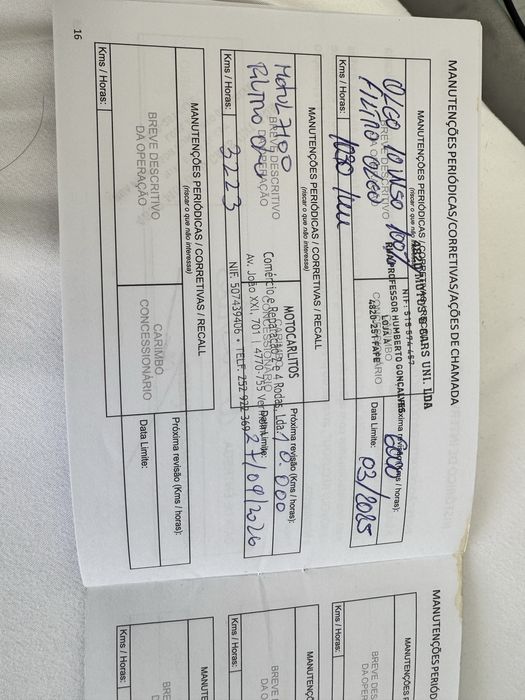 MANUTENÇÕES PERIÓDICAS/CORRETIVAS/AÇÕES DE CHAMADA
MANUTENÇÕES PERIÓDICAS / CORRETIVAS / RECALL
(riscar o que não interessa)
BREVE DESCRITIVO
DA OPERAÇÃO
FILTRO OLEO
CARIMBO
CONCESSIONÁRIO
& CARS UNI. LDA
NIF: 515 574 457
PROFESSOR HUMBERTO GONÇALVES
LOJA A
4820-251 FAFE
Próxima revisão (Kms / horas):
6000
Data Limite:
03/2025
Kms / Horas:
1030 km
MANUTENÇÕES PERIÓDICAS / CORRETIVAS / RECALL
(riscar o que não interessa)
BREVE DESCRITIVO
DA OPERAÇÃO
Motul 7100
Filtro
CONCESSIONÁRIO
MOTOCARLITOS
Comércio e Reparação 2 e 4 Rodas, Lda.
Av. João XXI, 701 I 4770-755 Ver
NIF. 507439406 • TELF. 252 922 369
Próxima revisão (Kms / horas):
Data Limite:
27/09/2026
Kms / Horas:
3223
MANUTENÇÕES PERIÓDICAS / CORRETIVAS / RECALL
(riscar o que não interessa)
BREVE DESCRITIVO
DA OPERAÇÃO
CARIMBO
CONCESSIONÁRIO
Próxima revisão (Kms / horas):
Data Limite:
Kms / Horas:
16
MANUTENÇÕES PERIÓD
MANUTENÇÕES
BREVE DES
DA OPER
Kms / Horas:
MANUTENÇ
BREVE D
DA O
Kms / Horas:
MANUTE
BRE
D
Kms / Horas: